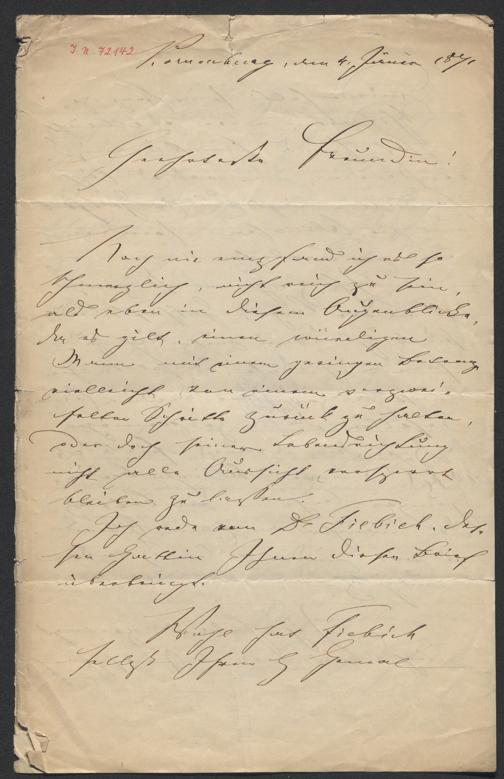 I.N. 72142
Korneuburg, den 4. Jänner 1871
Geehrteste Freundin!
Noch nie empfand ich es so
schmerzlich, nicht reich zu sein,
als eben in diesem Augenblicke,
da es gilt, einen würdigen
Mann mit einem geringen Betrag
vielleicht von einem verzwei-
felten Schritte zurück zu halten,
oder doch seiner Lebensrichtung
nicht alle Aussicht versperrt
bleiben zu lassen.
Ich rede von Dr Fiebich, des-
sen Gattin Ihnen diesen Brief
überbringt.
Wohl hat Fiebich
selbst Ihren H Gemal